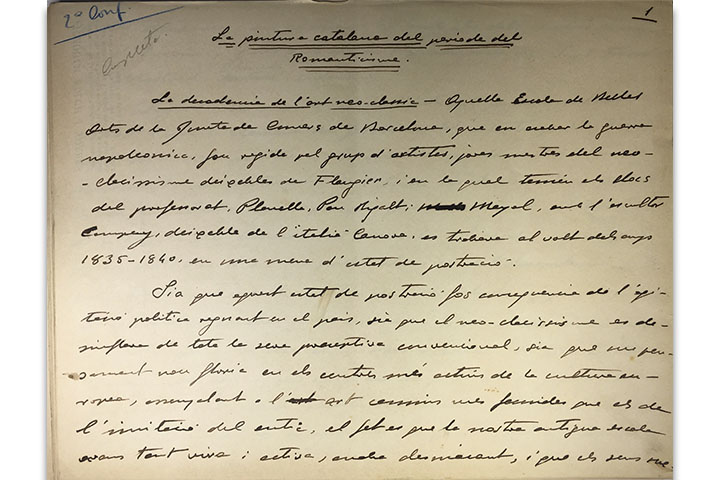 2ª Conf.
1
La pintura catalana del periode del
Romanticisme.
La decadencia de l'art neo-classic – Aquella Escola de Belles
Arts de la Junta de Comers de Barcelona, que en acabar la guerra
napoleonica, fou regida pel grup d'artistes, joves mestres del neo-
-clacissisme deixebles de Flaugier, i en la qual tenien els llocs
del professorat, Planella, Pau Rigalt, Mayol, amb l'escultor
Campeny, deixeble de l'italià Canova, es trobava al volt dels anys
1835-1840, en una mena d'estat de postració.
Sia que aquest estat de postració fos consequencia de l'agi-
tació politica regnant en el pais, sia que el neo-clacissisme es de-
sinflava de tota la seva preceptiva convencional, sia que un pen-
sament nou floria en els centres més actius de la cultura eu-
ropea, assenyalant a l'art camins mes fecondes que els de
l'imitació del antic, el fet es que la nostra antiga escola
avans tant viva i activa, anaba desmaiant, i que els seus